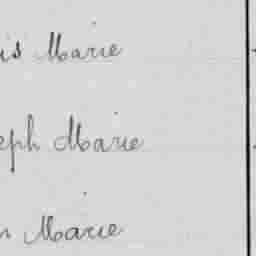 is Marie
eph Marie
n Marie